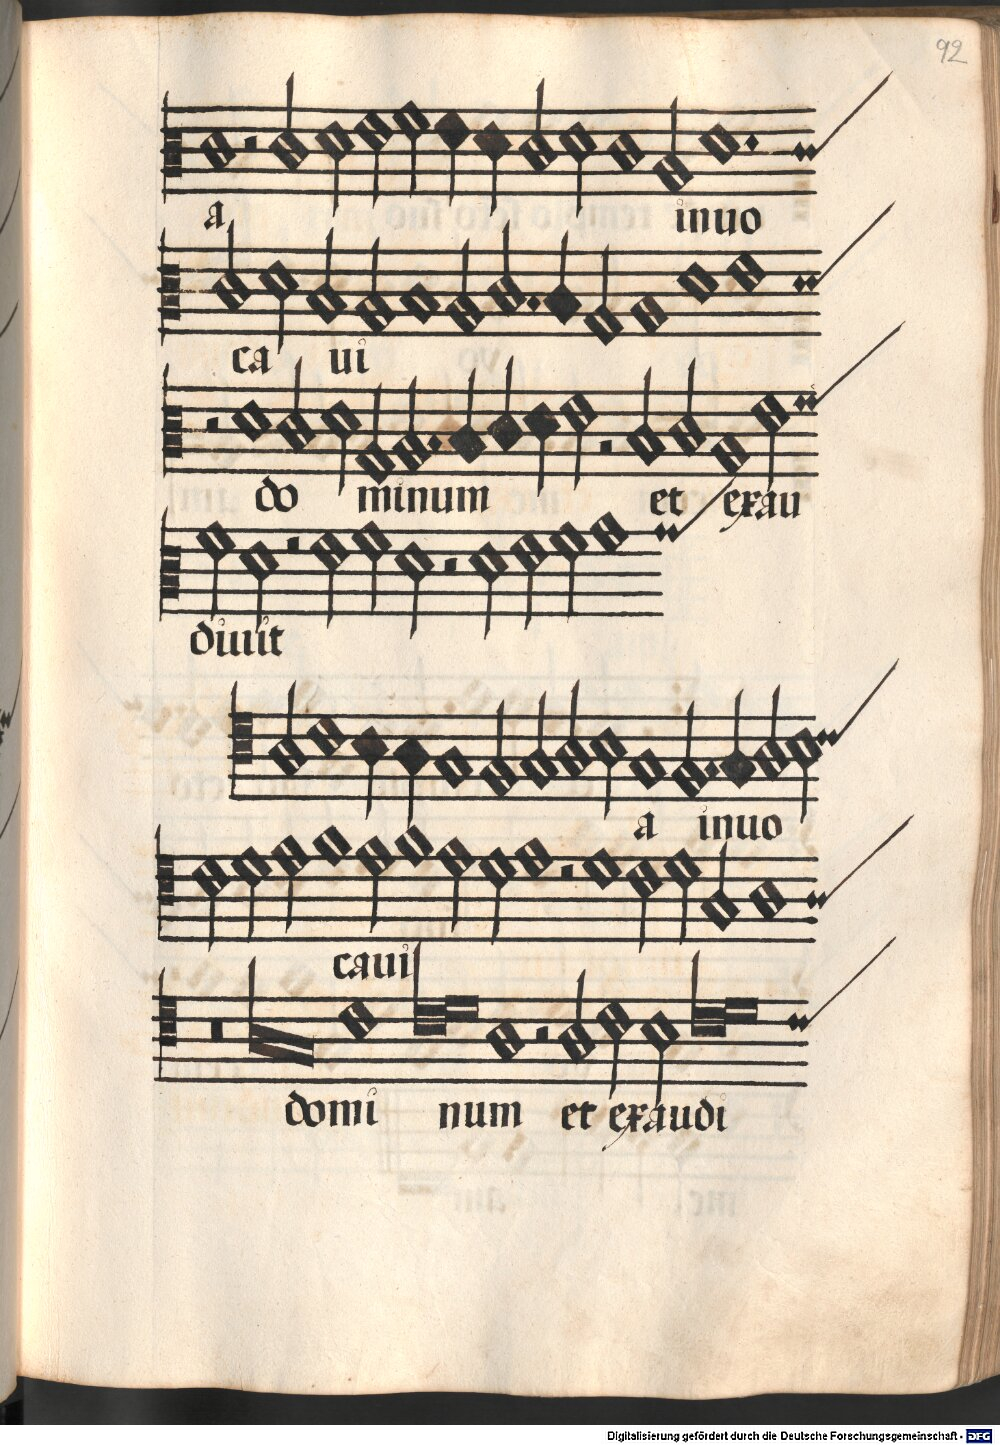 92
a inuo
ca ui
do minum et exau
diuit
a inuo
caui
domi num et exaudi
Digitalisierung gefördert durch die Deutsche Forschungsgemeinschaft - DFG